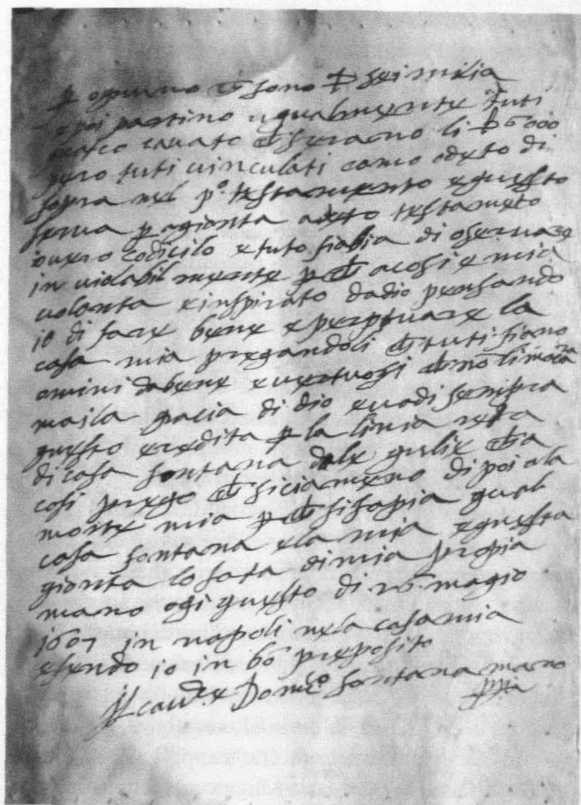 p ognuno che sono D seimilia
e poi partino ugualmente tuti
cavato che serano li D 6000
pero tuti vinculati como e deto di
sopra nel p.º testamento e questo
serva p agionta a deto testameto
overo codicilo e tuto si abia di oservare
inviolabilmente p che a cosi e mia
volonta e inspirato da dio pensando
io di fare bene e perpetuare la
casa mia pregandoli che tuti siano
omini da bene e vertuosi che no li mocara
mai la gracia di dio e vadi sempra
questo eredita p la linia reta
di casa fontana dale gulie che a
cosi prego che si ciameno di poi ala
morte mia p che si sapia qual
casa fontana e la mia e questa
gionta lo fata di mia propia
mano ogi questo di 26 magio
1607 in napoli nela casa mia
esendo io in bo preposito
Il cavalre Domco fontana mano
ppia